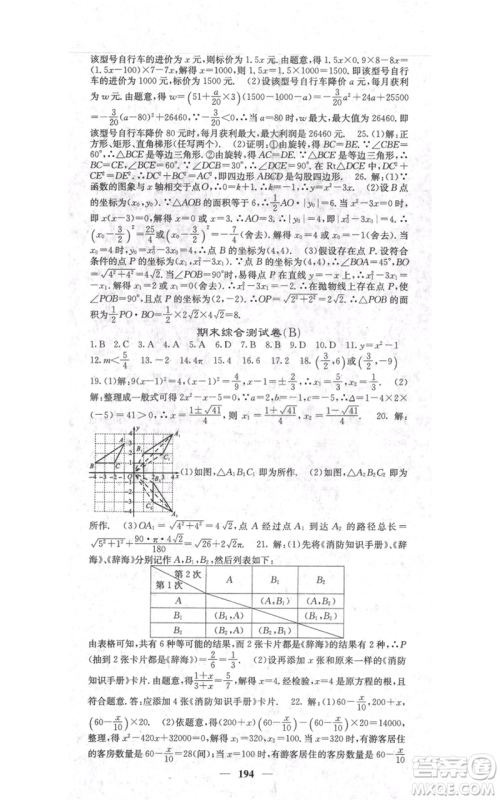 该型号自行车的进价为 x 元,则标价为 1.5x 元. 由题意,得 1.5x×0.9×8-8x=
(1.5x-100)×7-7x,解得 x=1000. ∴1.5x=1500. 即该型号自行
车的进价为 1000 元,标价为 1500 元. (2)设该型号自行车降价 a 元,每月获
利为 w 元. 由题意,得 w=(51+a/20×3)(1500-1000-a)=-3/20a²+24a+25500
=-3/20(a-80)²+26460. ∵-3/20<0,∴当 a=80 时,w 最大,最大值为 26460. 即
该型号自行车降价 80 元时,每月获利最大,最大利润是 26460 元. 25. (1)解:正
方形、矩形、直角梯形. (2)证明:①由旋转,得 BC=BE. ∵∠CBE=
60°,∴△BCE 是等边三角形. ②由旋转,得 AC=DE. ∵△BCE 是等边三角形,
∴BC=CE,∠BCE=60°. ∵∠DCB=30°,∴∠DCE=90°. 在 Rt△DCE 中,
DC²+CE²=DE²,∴DC²+BC²=AC²,∴四边形 ABCD 是勾股四边形. 26. 解:(1)∵
函数的图象与 x 轴相交于点 O,∴0=k+1,∴k=-1,∴y=x²-3x. (2)设 B 点
的坐标为(x₀,y₀). ∵△AOB 的面积等于 6,∴1/2AO·|y₀|=6. 当 x²-3x=0
时,即 x(x-3)=0,解得 x=0 或 3. ∴AO=3. ∴|y₀|=4,即|x₀²-3x₀|=4.
∴(x₀-3/2)²=25/4 或(x₀-3/2)²=-7/4(舍去). 解得 x₀=4 或 x₀=-1(舍去). 当
x₀=4 时,y₀=x₀²-3x₀=4,∴点 B 的坐标为(4,4). (3)假设存在点 P. 设符合
条件的点 P 的坐标为(x₁,x₁²-3x₁). ∵点 B 的坐标为(4,4),∴∠BOA=45°,BO
=√(4²+4²)=4√2. 当∠POB=90°时,易得点 P 在直线 y=-x 上,∴x₁²-3x₁=
-x₁,解得 x₁=2 或 x₁=0(舍去),∴x₁²-3x₁=-2. ∴在抛物线上存在点 P(2,
-2),使∠POB=90°,∴OP=√(2²+2²)=2√2,∴△POB 的面积为 1/2PO·BO=
1/2×4√2×2√2=8.
期末综合测试卷(B)
12. m<5/4 13. 2 14. 4π 15. 5 16. 4 17. 1/2 18. (2,6)或
19. (1)解:(x-1)²=4,∴x-1=±2,∴x₁=3,x₂=-1. (2)
解:整理成一般式可得 2x²-x-5=0. ∵a=2,b=-1,c=-5,∴Δ=(-1)²-4×2
×(-5)=41>0,∴x=(1±√41)/4,∴x₁=(1+√41)/4,x₂=(1-√41)/4. 20. 解:
(1)如图,△A₁B₁C₁ 即为所作. (2)如图,△A₂B₂C₂ 即为
所作. (3)OA₁=√(4²+4²)=4√2,点 A 经过点 A₁ 到达 A₂ 的路径总长=
√(5²+1²)+90·π·4√2/180=√26+2√2π. 21. 解:(1)将《消防知识手册》《辞
海》《辞海》分别记作 A,B₁,B₂,然后列表如下:
第 2 次 A B₁ B₂
第 1 次
A (A,B₁) (A,B₂)
B₁ (B₁,A) (B₁,B₂)
B₂ (B₂,A) (B₂,B₁)
由表格可知,共有 6 种等可能的结果,其中 2 张卡片都是《辞海》的有 2 种,∴P
(抽到 2 张卡片都是《辞海》)=2/6=1/3. (2)设应添加 x 张和原来一样的《消防
知识手册》卡片. 由题意,得 (1+x)/(3+x)=5/7,解得 x=4. 经检验,x=4 是原方程的根,且
符合题意. 答:应添加 4 张《消防知识手册》卡片. 22. 解:(1)60-x/10,(200+x)·
(60-x/10) (2)依题意,得(200+x)(60-x/10)-20×(60-x/10)=14000,
整理,得 x²-420x+32000=0,解得 x₁=320,x₂=100. 当 x=320 时,有游客居住
的客房数量是 60-x/10=28(间);当 x=100 时,有游客居住的客房数量是 60-x/10
194